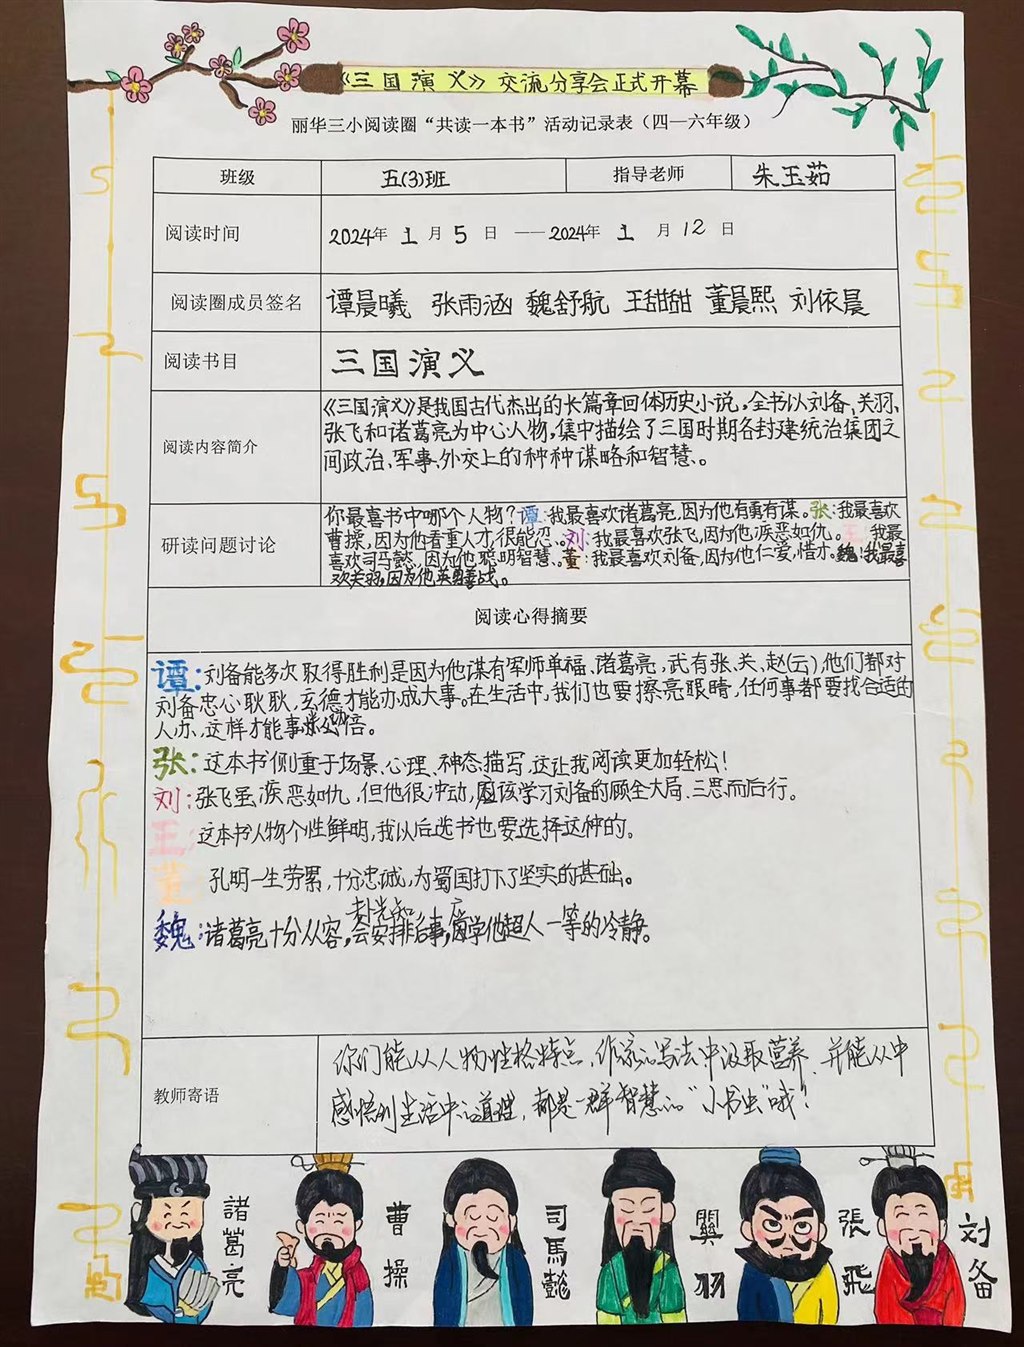 《三国演义》交流分享会正式开幕
丽华三小阅读圈“共读一本书”活动记录表（四—六年级）
班级 五(3)班 指导老师 朱玉茹
阅读时间 2024年 1 月 5 日 ——2024年 1 月 12 日
阅读圈成员签名 谭晨曦 张雨涵 魏舒航 王甜甜 董晨熙 刘依晨
阅读书目 三国演义
阅读内容简介
《三国演义》是我国古代杰出的长篇章回体历史小说，全书以刘备、关羽、
张飞和诸葛亮为中心人物，集中描绘了三国时期各封建统治集团之
间政治、军事、外交上的种种谋略和智慧、。
研读问题讨论
你最喜书中哪个人物？谭：我最喜欢诸葛亮，因为他有勇有谋。张：我最喜欢
曹操，因为他看重人才，很能忍、。刘：我最喜欢张飞，因为他疾恶如仇。王 我最
喜欢司马懿，因为他聪明智慧、。董：我最喜欢刘备，因为他仁爱，惜才。魏：我最喜
欢关羽，因为他英勇善战。
阅读心得摘要
谭：刘备能多次取得胜利是因为他谋有军师单福、诸葛亮，武有张、关、赵(云)，他们都对
刘备忠心耿耿，玄德才能办成大事。在生活中，我们也要擦亮眼睛，任何事都要找合适的
人办，这样才能事半功倍。
张：这本书侧重于场景、心理、神态描写，这让我阅读更加轻松！
刘：张飞虽疾恶如仇，但他很冲动，应该学习刘备的顾全大局、三思而后行。
王：这本书人物个性鲜明，我以后选书也要选择这种的。
董 孔明一生劳累，十分忠诚，为蜀国打下了坚实的基础。
魏：诸葛亮十分从容，会安排后事，应学他超人一等的冷静。
教师寄语
你们能从人物性格特点，作家的写法中汲取营养，并能从中
感悟到生活中的道理，都是一群智慧的“小书虫”哦！
諸葛亮
曹操
司馬懿
關羽
張飛
刘备